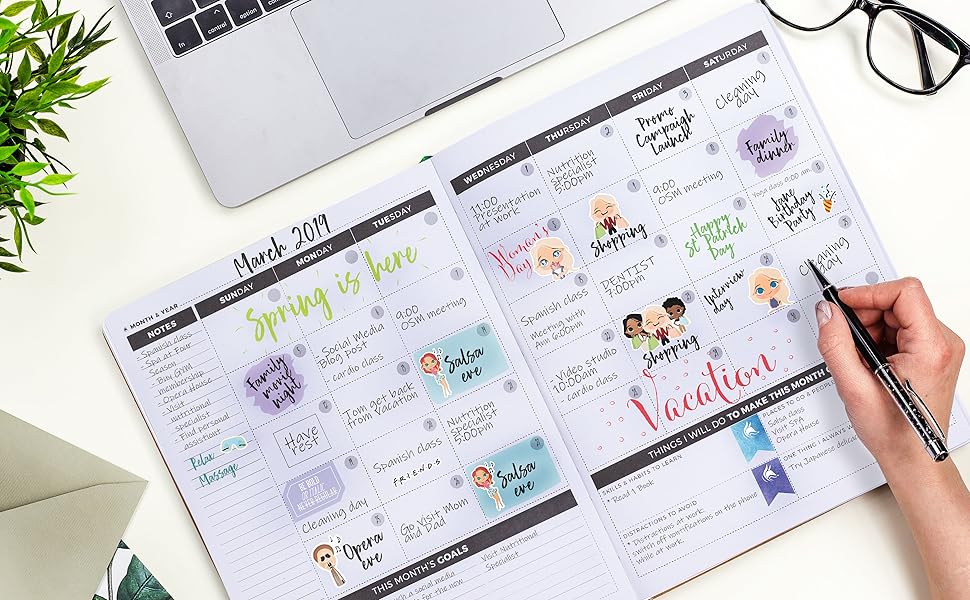 fn
control
option
March 2019
MONTH & YEAR
NOTES
- Spanish class
- Spa at Four
Season
membership
- Opera house
- Visit
nutritional
specialist
- Find personal
assistant
Relax
Massage
SUNDAY
MONDAY
TUESDAY
Spring is here
Family
movie
night
Social Media
Blog post
- cardio class
9:00
OSM meeting
Have
rest
Tom get back
from vacation
Salsa
eve
BE BOLD
OR ITALIC
NEVER REGULAR
Cleaning day
Spanish class
FRIENDS
Nutrition
Specialist
5:00pm
Opera
eve
Go Visit Mom
and Dad
Salsa
eve
THIS MONTH'S GOALS
social media
for the new
Visit Nutritional
Specialist
WEDNESDAY
THURSDAY
FRIDAY
SATURDAY
11:00
Presentation
at work
Nutrition
specialist
5:00pm
Promo
Campaign
Launch
Cleaning
day
Woman's
Day
Shopping
9:00
OSM meeting
Family
dinner
Spanish class
Meeting with
Ann 6:00pm
DENTIST
7:00pm
Happy
St Patrick
Day
Yoga class 9:00 am
Jane
Birthday
Party
Video studio
10:00am
- cardio class
Shopping
Interview
day
Cleaning
day
Vacation
THINGS I WILL DO TO MAKE THIS MONTH
SKILLS & HABITS TO LEARN
Read 1 Book
PLACES TO GO &
Salsa class
Visit SPA
Opera House
DISTRACTIONS TO AVOID
Distractions at work
switch off notifications on the phone
while at work
ONE THING I
Try Japanese